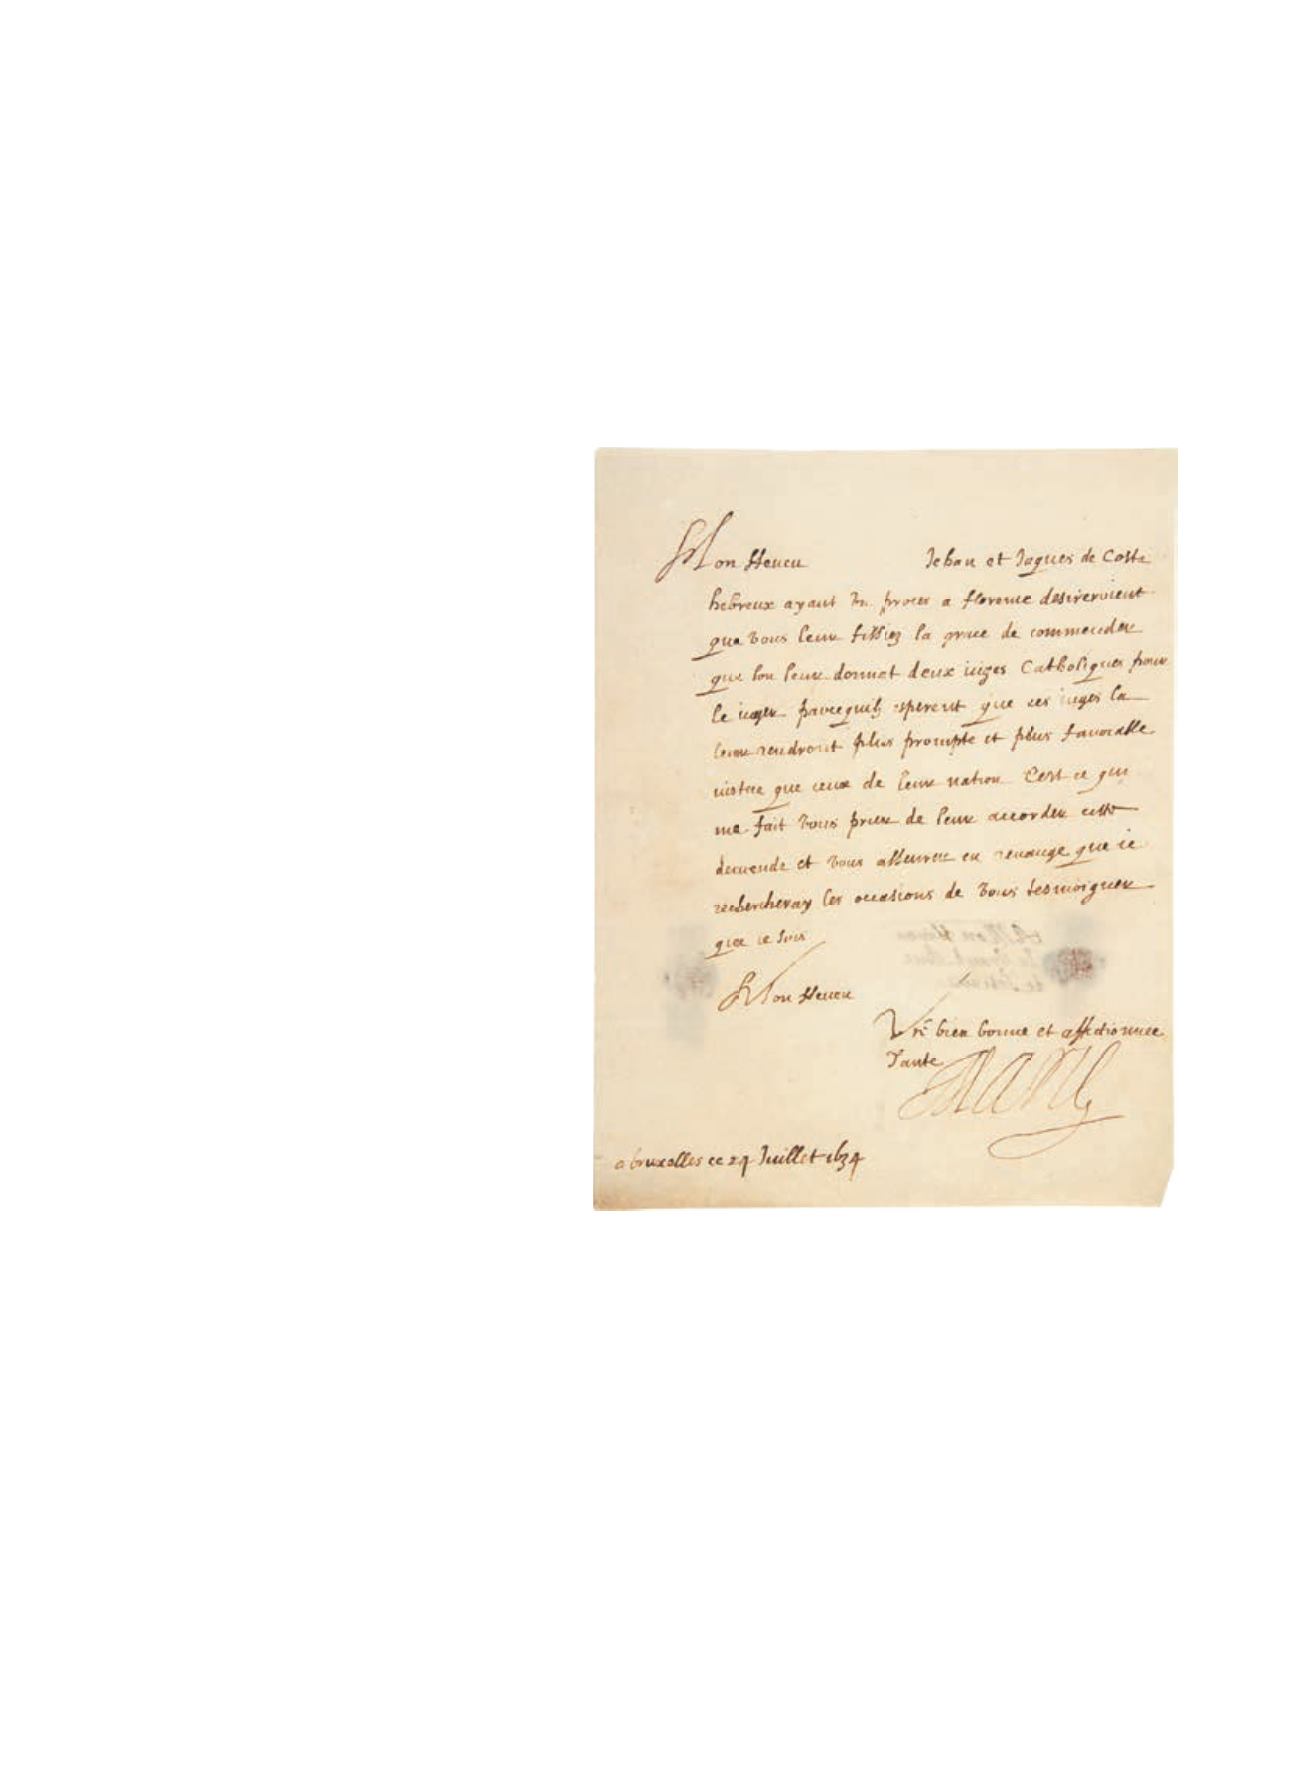 Mon Neveu Jehan et Jaques de Costa
hebreux ayant un proces a florence desireroient
que vous leur fissiez la grace de commender
que lon leur donnat deux iuges Catholiques pour
le iuger parcequilz esperent que ces iuges la
leur rendront plus prompte et plus favorable
iustice que ceux de leur nation Cest ce qui
me fait vous prier de leur accorder cette
demende et vous asseurer en revange que ie
rechercheray les occasions de vous tesmoigner
que ie suis
Mon Neveu
Vrē bien bonne et affectionnee
Tante
Marie
a bruxelles ce 24 Juillet 1634
A Mon Neveu
le Grand Duc
de